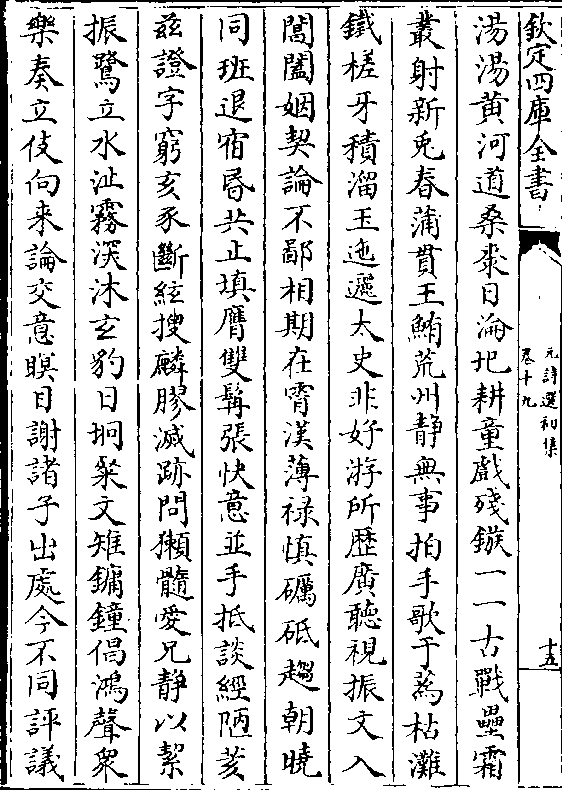 欽定四庫全書
元詩選初集
卷十九
十五
湯湯黃河道桑棗日淪圮耕童戲殘鏃一一古戰壘霜
叢射新兎春蒲貫王鮪荒州靜無事拍手歌于蔿枯灘
鐵槎牙積溜玉迤邐太史非好游所歷廣聽視振文入
閶闔姻契論不鄙相期在霄漢薄禄慎礪砥趨朝曉
同班退宿昏共止填膺雙髯張快意並手抵談經陋芟
兹證字窮亥豕斷絃搜麟膠滅跡問獺髓愛兄靜以絜
振鷺立水沚霧深沐玄豹日埛粲文雉鏞鐘倡鴻聲衆
樂奏立伎向来論交意瞑目謝諸子出處今不同評議